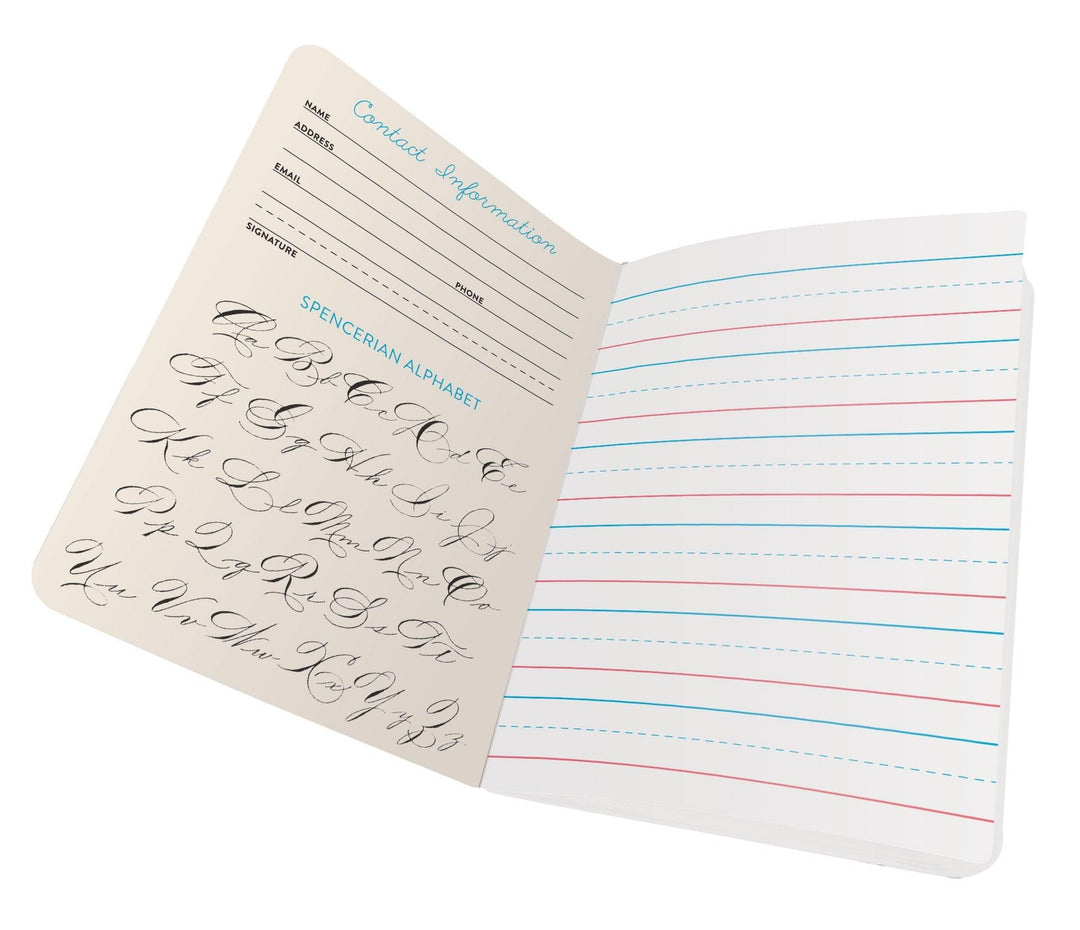 Contact Information
NAME
ADDRESS
EMAIL
PHONE
SIGNATURE
SPENCERIAN ALPHABET
Aa Bb Cc Dd Ee
Ff Gg Hh Ii Jj
Kk Ll Mm Nn Oo
Pp Qq Rr Ss Tt
Uu Vv Ww Xx Yy Zz